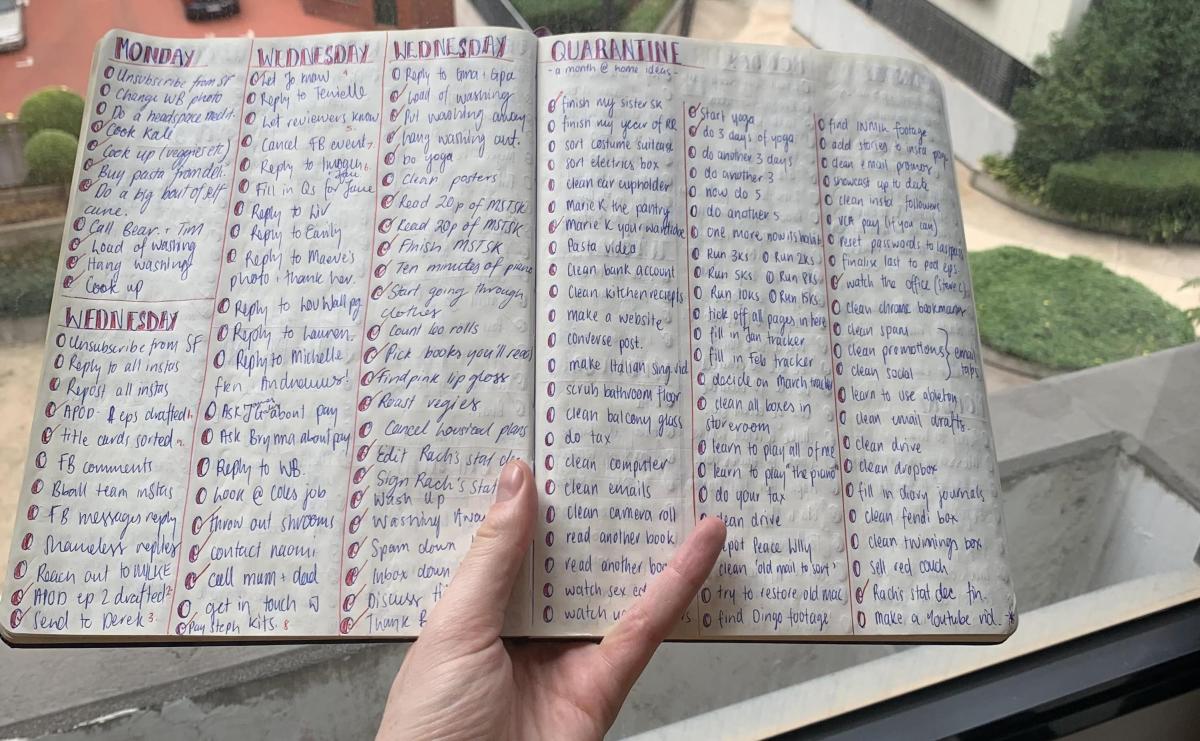 MONDAY
Unsubscribe from SF
Change WB photo
Do a headspace medit.
Cook Kale
Cook up (veggies etc)
Buy pasta from deli.
Do a big bout of self
care.
Call Bear + Tim
Load of washing
Hang washing
Cook up
WEDNESDAY
Unsubscribe from SF
Reply to all instas
Repost all instas
APOD - eps drafted 1.
title cards sorted 2.
FB comments
Bball team instas
FB messages reply
Shameless replies
Reach out to
APOD ep 2 drafted 2
Send to Derek 3.
WEDNESDAY
Let Jo know 4
Reply to Tenielle
Let reviewers know 5.
Cancel FB event 7.
Reply to 6.
Fill in Qs for Jane
Reply to Liv
Reply to Emily
Reply to Maeve's
photo + thank her.
Reply to Lou Wall pg
Reply to Lauren.
Reply to Michelle
Ask about pay
Ask Brynna about pay
Reply to WB.
Look @ Coles job
throw out shrooms
contact naomi
call mum + dad
get in touch
Pay steph kits. 8
WEDNESDAY
Reply to Gma + Gpa
Load of washing
Put washing away
hang washing out.
Do yoga
Clean posters
Read 20p of MSTSK
Read 20p of MSTSK
Finish MSTSK
Ten minutes of piano
Start going through
clothes
Count loo rolls
Pick books you'll read
Find pink lip gloss
Roast vegies
Cancel houseical plans
Edit Rach's stat dec
Sign Rach's Stat
Wash up
Washing Away
Spam down
Inbox down
Discuss
Thank
QUARANTINE
- a month @ home ideas -
finish my sister sk
finish my year of RR
sort costume suitcase
sort electrics box
clean car cupholder
marie K the pantry
marie K your wardrobe
Pasta video
clean bank account
Clean kitchen receipts
make a website
converse post.
make Italian sing. vid
scrub bathroom floor
clean balcony glass
do tax
clean computer
clean emails
clean camera roll
read another book
read another book
watch sex ed
watch
Start yoga
do 3 days of yoga
do another 3 days
do another 3
now do 5
do another 5
one more now its habit
Run 3Ks Run 2Ks
Run 5Ks Run 8Ks
Run 10Ks Run 15Ks
tick off all pages in here
fill in Jan tracker
fill in Feb tracker
decide on March tracker
clean all boxes in
storeroom
learn to play all of me
learn to play "the piano"
do your tax
clean drive
repot Peace Lilly
clean 'old mail to sort'
try to restore old mac
find Dingo footage
find INMIK footage
add stories to insta page
clean email promos
showcast up to date
clean insta followers
VCA pay (if you can)
reset passwords to lastpass
finalise last to pod eps.
watch the office (Steve C)
clean chrome bookmarks
clean spam
clean promotions } email
clean social tabs
learn to use ableton
clean email drafts.
clean drive
clean dropbox
fill in diary journals
clean fendi box
clean twinnings box
sell red couch
Rach's stat dec fin.
make a Youtube vid. *